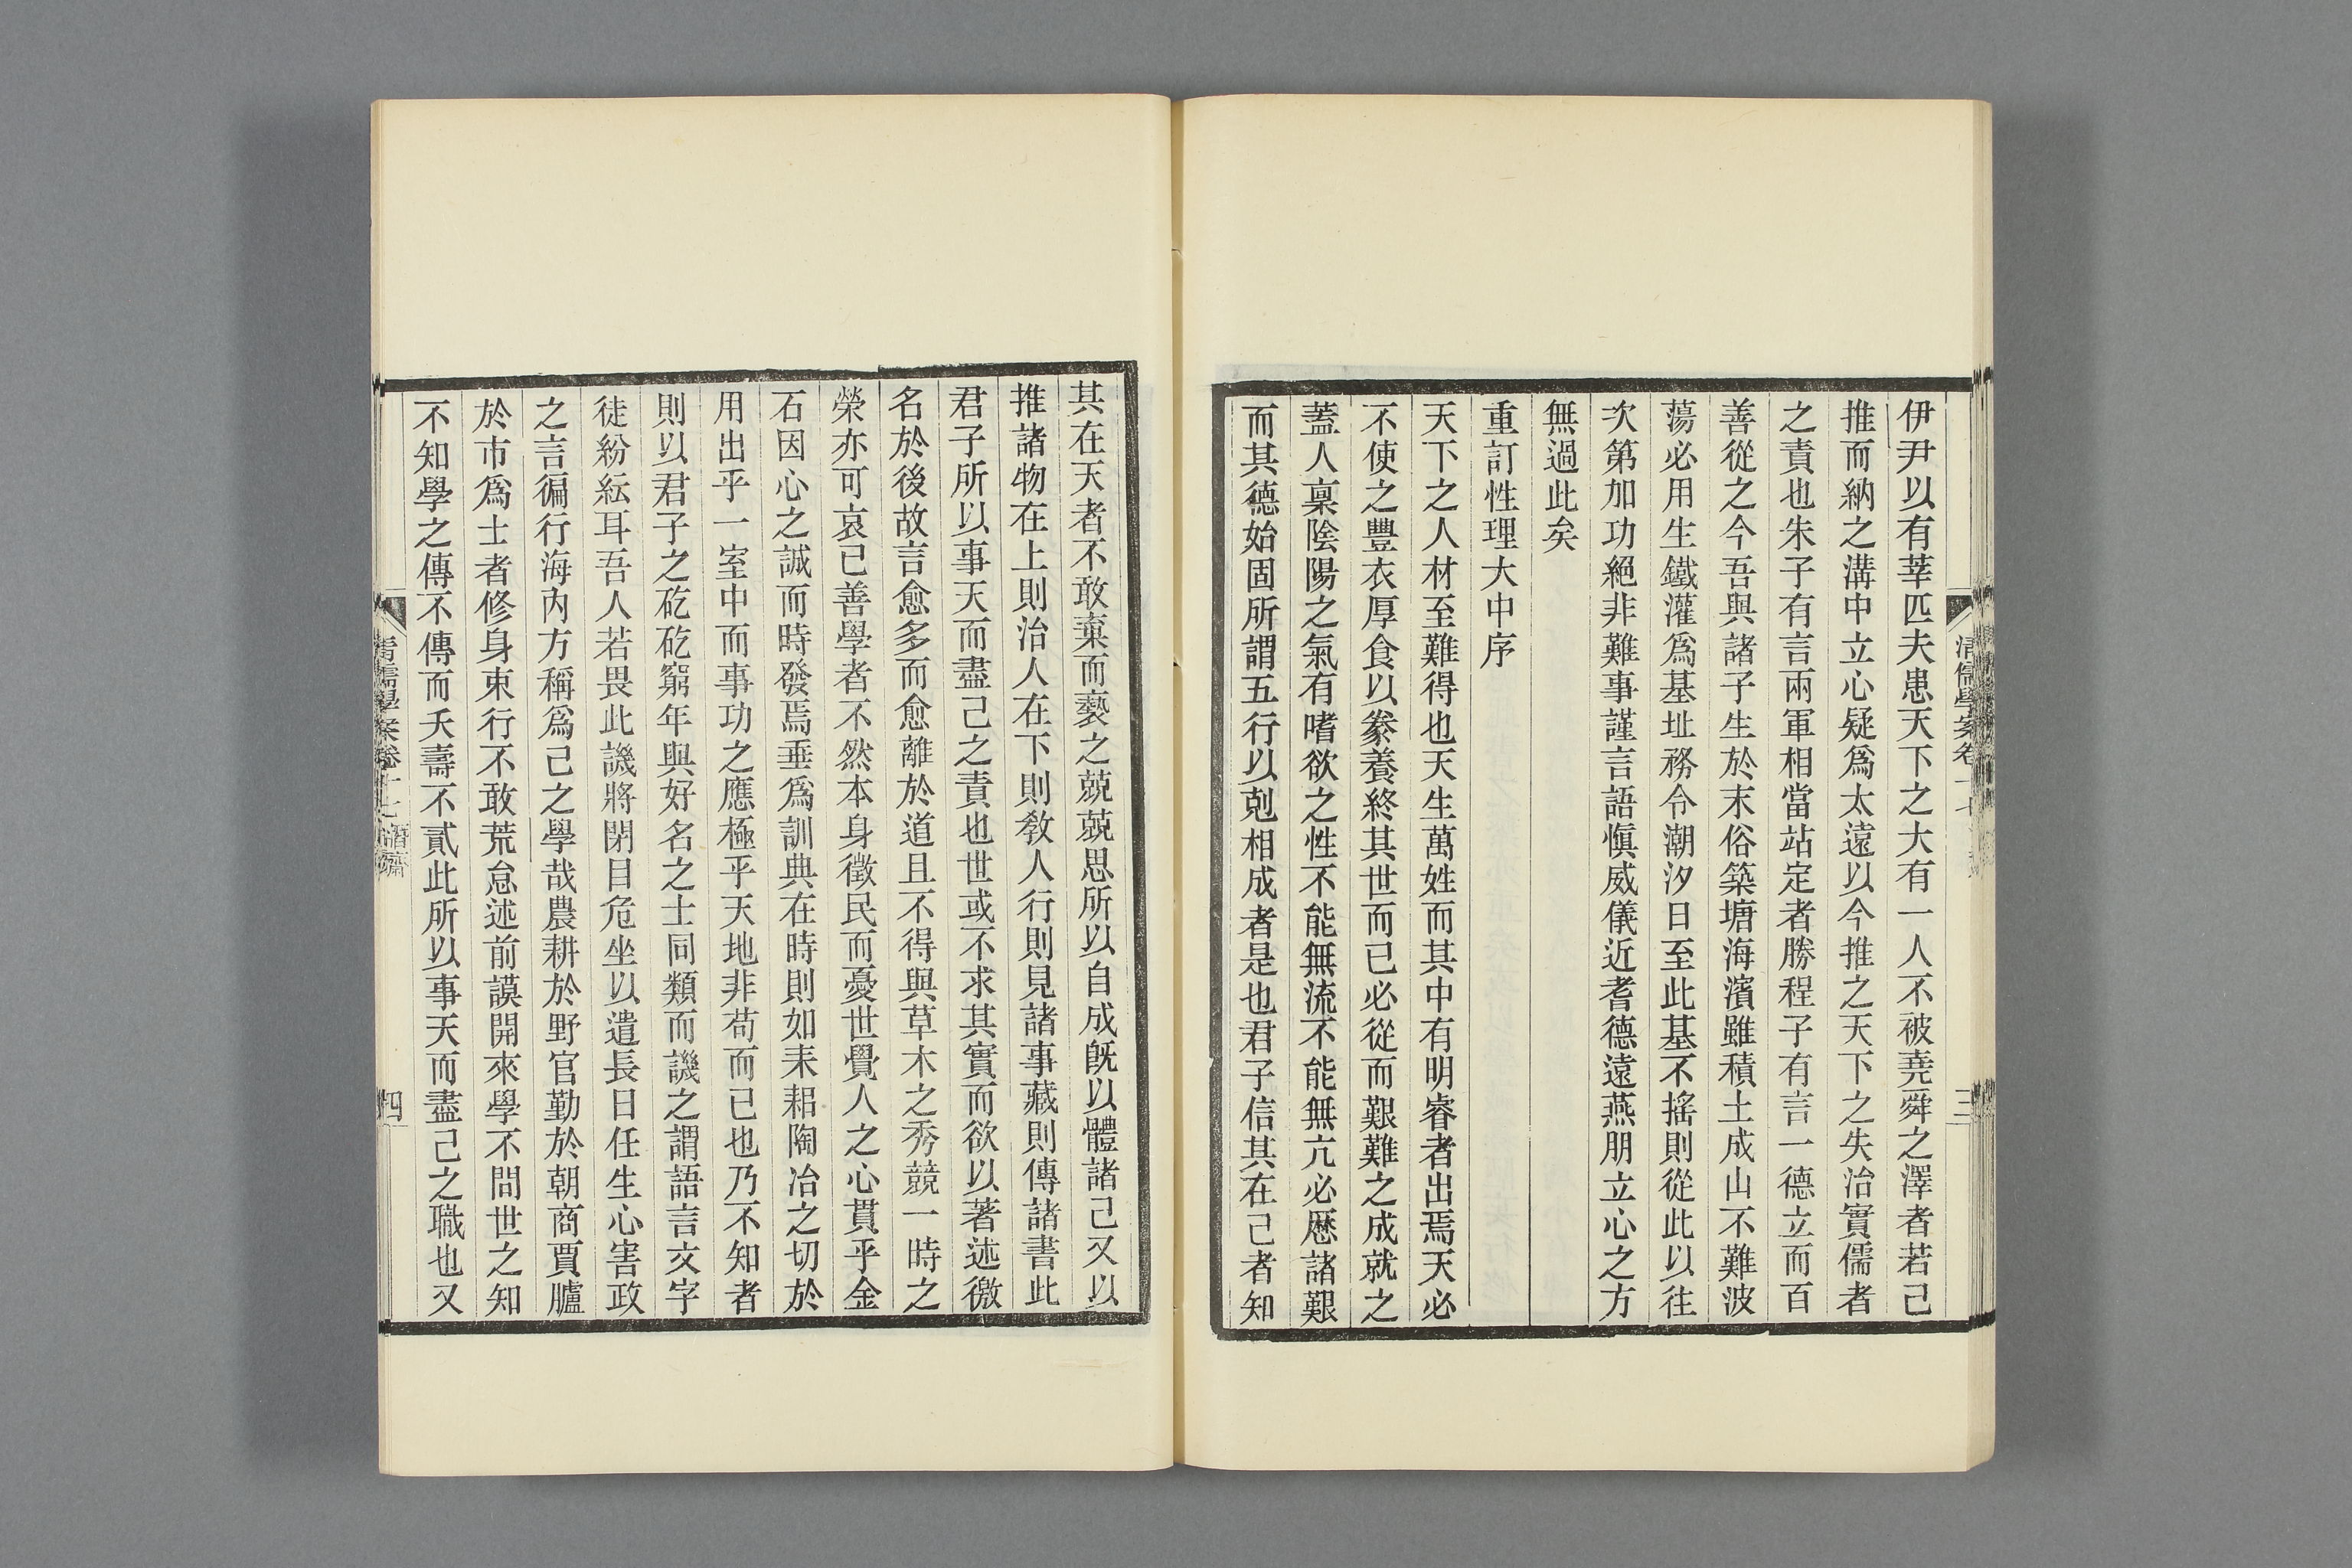 伊尹以有莘匹夫患天下之大有一人不被堯舜之澤者若己
推而納之溝中立心疑爲太遠以今推之天下之失治實儒者
之責也朱子有言兩軍相當站定者勝程子有言一德立而百
善從之今吾與諸子生於末俗築塘海濱雖積土成山不難波
蕩必用生鐵灌爲基址務令潮汐日至此基不搖則從此以往
次第加功絕非難事謹言語愼威儀近耆德遠燕朋立心之方
無過此矣
重訂性理大中序
天下之人材至難得也天生萬姓而其中有明睿者出焉天必
不使之豐衣厚食以豢養終其世而已必從而艱難之成就之
蓋人稟陰陽之氣有嗜欲之性不能無流不能無亢必歷諸艱
而其德始固所謂五行以剋相成者是也君子信其在己者知
清儒學案卷十七
三
其在天者不敢棄而褻之兢兢思所以自成旣以體諸己又以
推諸物在上則治人在下則敎人行則見諸事藏則傳諸書此
君子所以事天而盡己之責也世或不求其實而欲以著述徼
名於後故言愈多而愈離於道且不得與草木之秀競一時之
榮亦可哀已善學者不然本身徵民而憂世覺人之心貫乎金
石因心之誠而時發焉垂爲訓典在時則如耒耜陶冶之切於
用出乎一室中而事功之應極乎天地非苟而已也乃不知者
則以君子之矻矻窮年與好名之士同類而譏之謂語言文字
徒紛紜耳吾人若畏此譏將閉目危坐以遣長日任生心害政
之言徧行海內方稱爲己之學哉農耕於野官勤於朝商賈臚
於市爲士者修身束行不敢荒怠述前謨開來學不間世之知
不知學之傳不傳而夭壽不貳此所以事天而盡己之職也又
清儒學案卷十七 潛齋
四